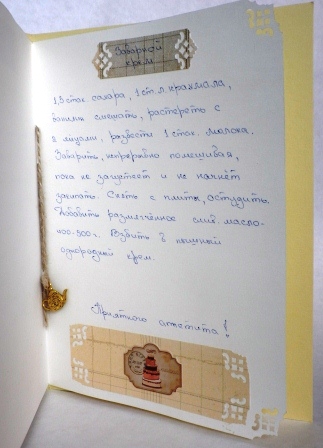 Заварной
крем
1,5 стак. сахара, 1 ст. л. крахмала,
ванили смешать, растереть с
яйцами, развести 1 стак. молока.
Заварить, непрерывно помешивая,
пока не загустеет и не начнёт
закипать. Снять с плиты, остудить.
Добавить размягчённое слив. масло-
400-500 г. Взбить в пышный
однородный крем.
Приятного аппетита!